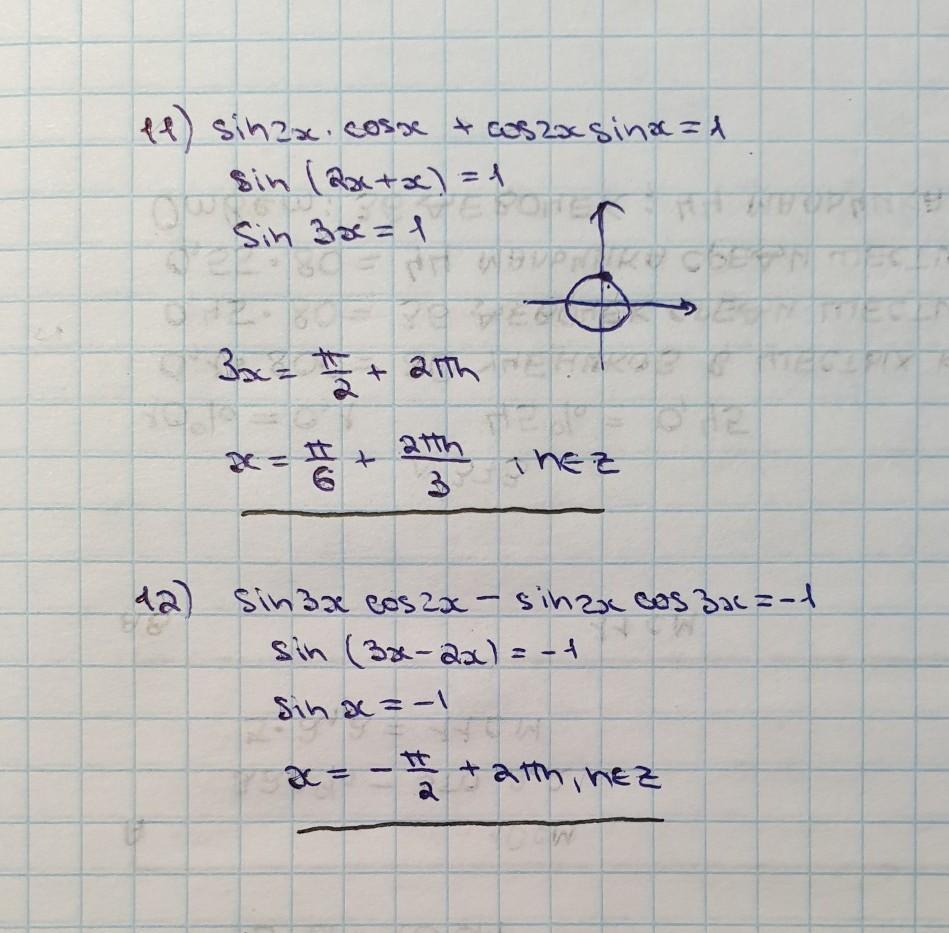 11) sin2x · cosx + cos2x sinx = 1
sin (2x+x) = 1
sin 3x = 1
3x = π/2 + 2πn
x = π/6 + 2πn/3 , n∈Z
12) sin3x cos2x − sin2x cos3x = −1
sin (3x−2x) = −1
sin x = −1
x = −π/2 + 2πn, n∈Z